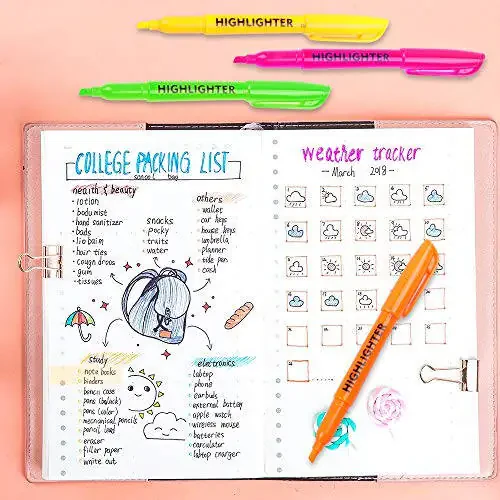 HIGHLIGHTER
HIGHLIGHTER
HIGHLIGHTER
COLLEGE PACKING LIST
school bag
health & beauty
• lotion
• body mist
• hand sanitizer
• pads
• lip balm
• hair ties
• cough drops
• gum
• tissues
snacks
pocky
fruits
water
others
• wallet
• car keys
• house keys
• umbrella
• planner
• tide pen
• cash
study
note books
binders
pencil case
pens (black)
pens (color)
mechanical pencils
pencil lead
eraser
filler paper
white out
electronics
laptop
phone
earbuds
external battery
apple watch
wireless mouse
batteries
calculator
laptop charger
weather tracker
-- March 2018 --
HIGHLIGHTER